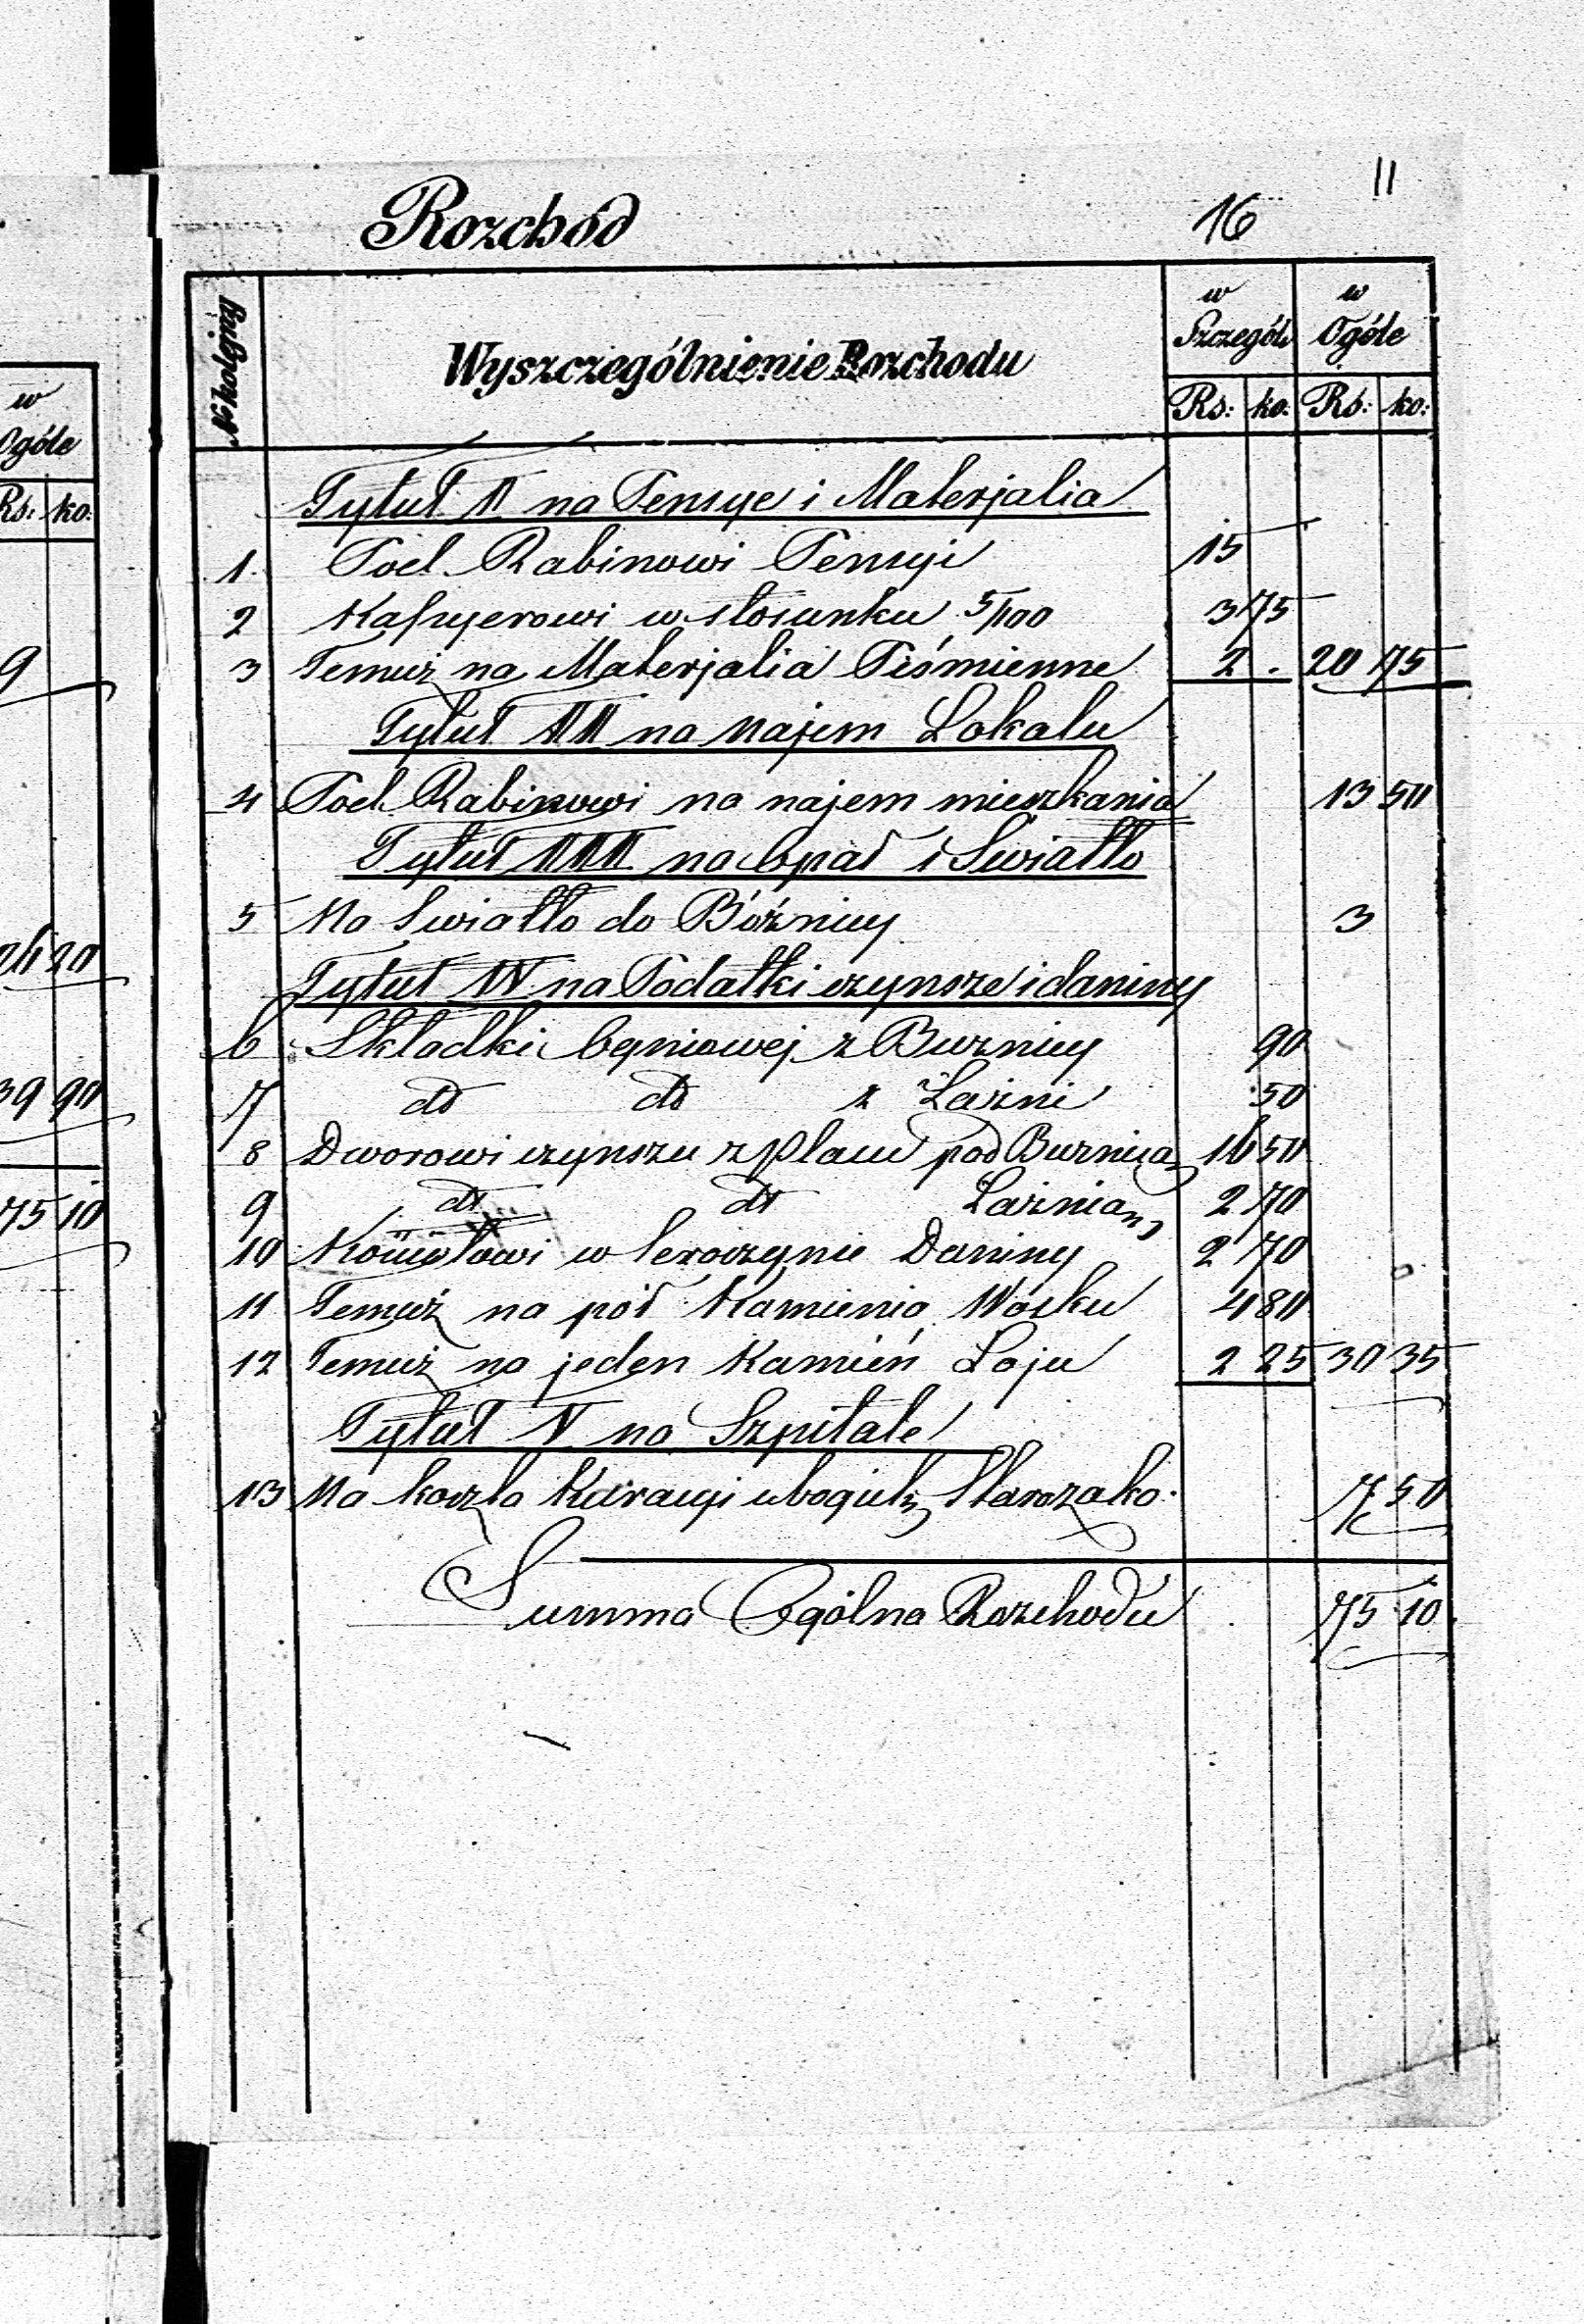 w
Ogóle
Rs: ko:
9
24 20
39 90
75 10
11
Rozchód 16
№ kolejny Wyszczególnienie Rozchodu w Szczegól: w Ogóle
Rs: ko: Rs: ko:
Tytuł I na Pensye i Materjalia
1. Pod. Rabinowi Pensyi 15
2 Kassyerowi w stosunku 5/100 3 75
3 Temuż na Materjalia Piśmienne 2 . 20 75
Tytuł II na najem Lokalu
4 Pod. Rabinowi na najem mieszkania 13 50
Tytuł III na Opał i Swiatło
5 Na Swiatło do Bóżnicy 3
Tytuł IV na Podatki czynsze i daniny
6 Składki Ogniowej z Buznicy 90
7 dto dto z Łazni 50
8 Dworowi czynszu z Placu pod Buznicą 16 50
9 dto dto Łaznią 2 70
10 w Daniny 2 70
11 Temuż na pół Kamienia Wosku 4 80
12 Temuż na jeden Kamień Łoju 2 25 30 35
Tytuł V na Szpitale
13 Na koszta Kuracyi ubogich Starozako. 7 50
Summa Ogólna Rozchodu 75 10